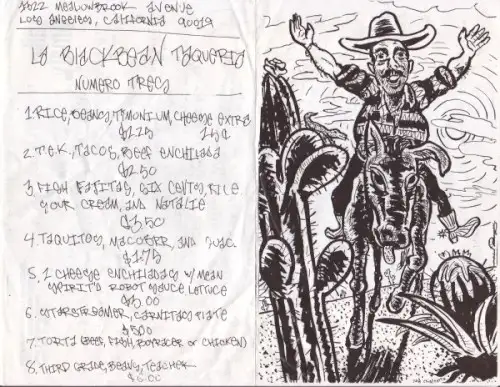 MEADOWBROOK AVENUE
LOS ANGELES, CALIFORNIA 90019
LA BLACKBEAN TAQUERIA
NUMERO
1. RICE, BEANS, TIMONIUM, CHEESE EXTRA
$1.25
2. T.E.K., TACOS, BEEF ENCHILADA
$2.50
3. FISH FAJITAS, SIX CENTS, RICE
SOUR CREAM, AND NATALIE
$3.50
4. TAQUITOS, AND GUAC.
$1.75
5. 2 CHEESE ENCHILADAS W/ MEAN
SPIRITS ROBOT SAUCE LETTUCE
$3.00
6. STARSTREAMER, CARNITAS PLATE
$5.00
7. TORTA BEEF, FISH, BOYRACER OR CHICKEN
8. THIRD GRADE, BEANS, TEACHER
$6.00